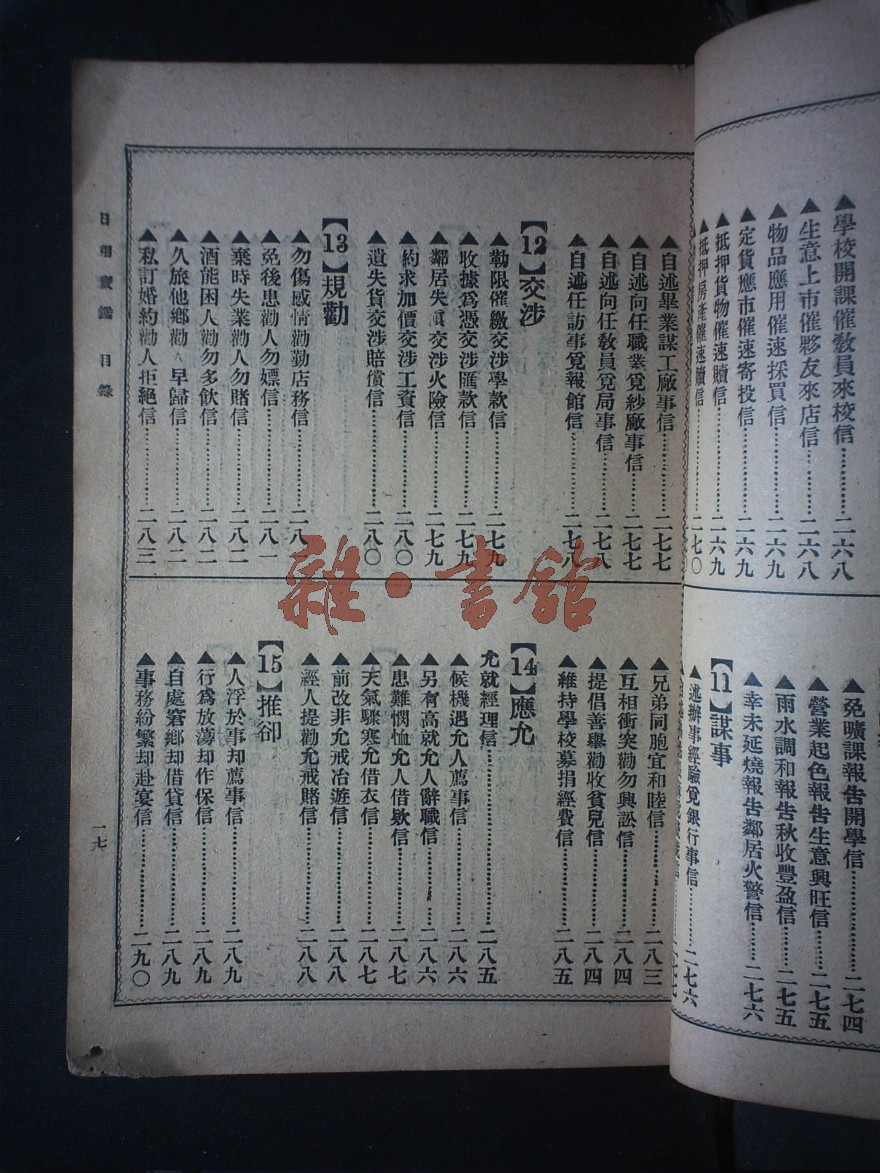 ▲學校開課催教員來校信……二六八
▲生意上市催夥友來店信……二六八
▲物品應用催速採買信……二六九
▲定貨應市催速寄投信……二六九
▲抵押貨物催速贖信……二六九
▲抵押房產催速贖信……二七〇
▲免曠課報告開學信……二七四
▲營業起色報告生意興旺信……二七五
▲雨水調和報告秋收豐盈信……二七五
▲幸未延燒報告鄰居火警信……二七六
【11】謀事
▲述辦事經驗覓銀行事信……二七六
▲自述畢業謀工廠事信……二七七
▲自述向任職業覓紗廠事信……二七七
▲自述向任教員覓局事信……二七八
▲自述任訪事覓報館信……二七八
【12】交涉
▲勒限催繳交涉學款信……二七九
▲收據爲憑交涉匯款信……二七九
▲鄰居失慎交涉火險信……二七九
▲約求加價交涉工資信……二八〇
▲遺失貨交涉賠償信……二八〇
【13】規勸
▲勿傷感情勸勤店務信……二八一
▲免後患勸人勿嫖信……二八一
▲棄時失業勸人勿賭信……二八二
▲酒能困人勸勿多飲信……二八二
▲久旅他鄉勸人早歸信……二八二
▲私訂婚約勸人拒絕信……二八三
▲兄弟同胞宜和睦信……二八三
▲互相衝突勸勿興訟信……二八四
▲提倡善舉勸收貧兒信……二八四
▲維持學校募捐經費信……二八五
【14】應允
允就經理信……二八五
▲候機遇允人薦事信……二八六
▲另有高就允人辭職信……二八六
▲患難憫恤允人借欵信……二八七
▲天氣驟寒允借衣信……二八七
▲前改非允戒冶遊信……二八八
▲經人提勸允戒賭信……二八八
【15】推卻
▲人浮於事却薦事信……二八九
▲行爲放薄却作保信……二八九
▲自處窘鄉却借貸信……二八九
▲事務紛繁却赴宴信……二九〇
日用寶鑑 目錄
一七
雜·書館